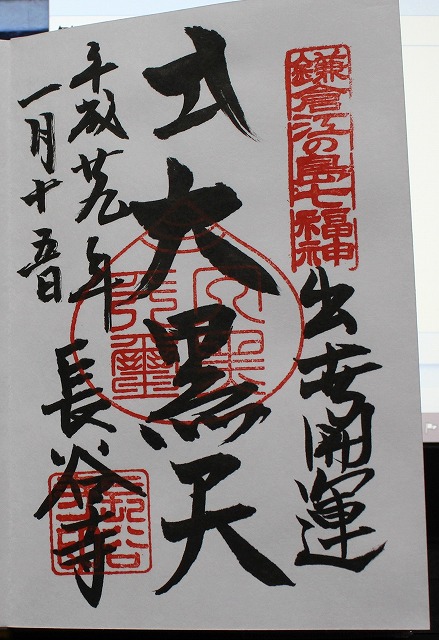 鎌倉江の島七福神
出世開運
大黒天
平成廿九年
一月十五日
長谷寺